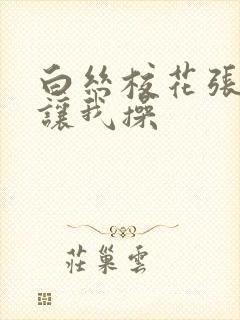 白絲校花張
讓我操
莊巢雲